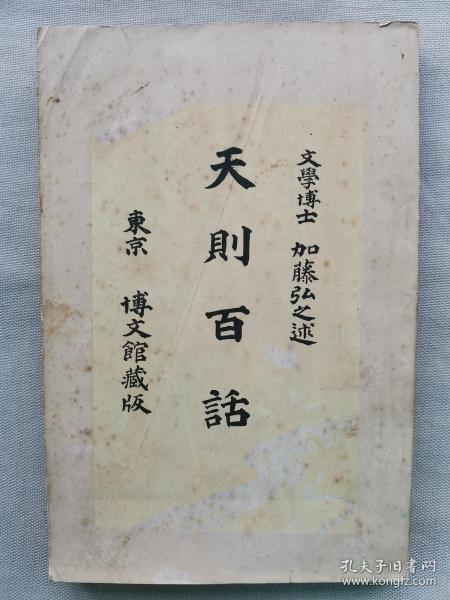 文學博士 加藤弘之述
天則百話
東京 博文館藏版
孔夫子旧书网
www.kongfz.com